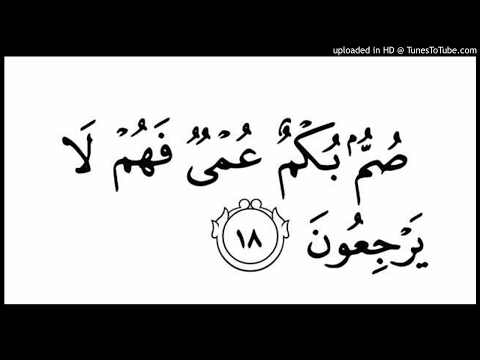 uploaded in HD @ TunesToTube.com
صُمُّۢ بُكْمٌ عُمْىٌ فَهُمْ لَا
يَرْجِعُونَ ١٨